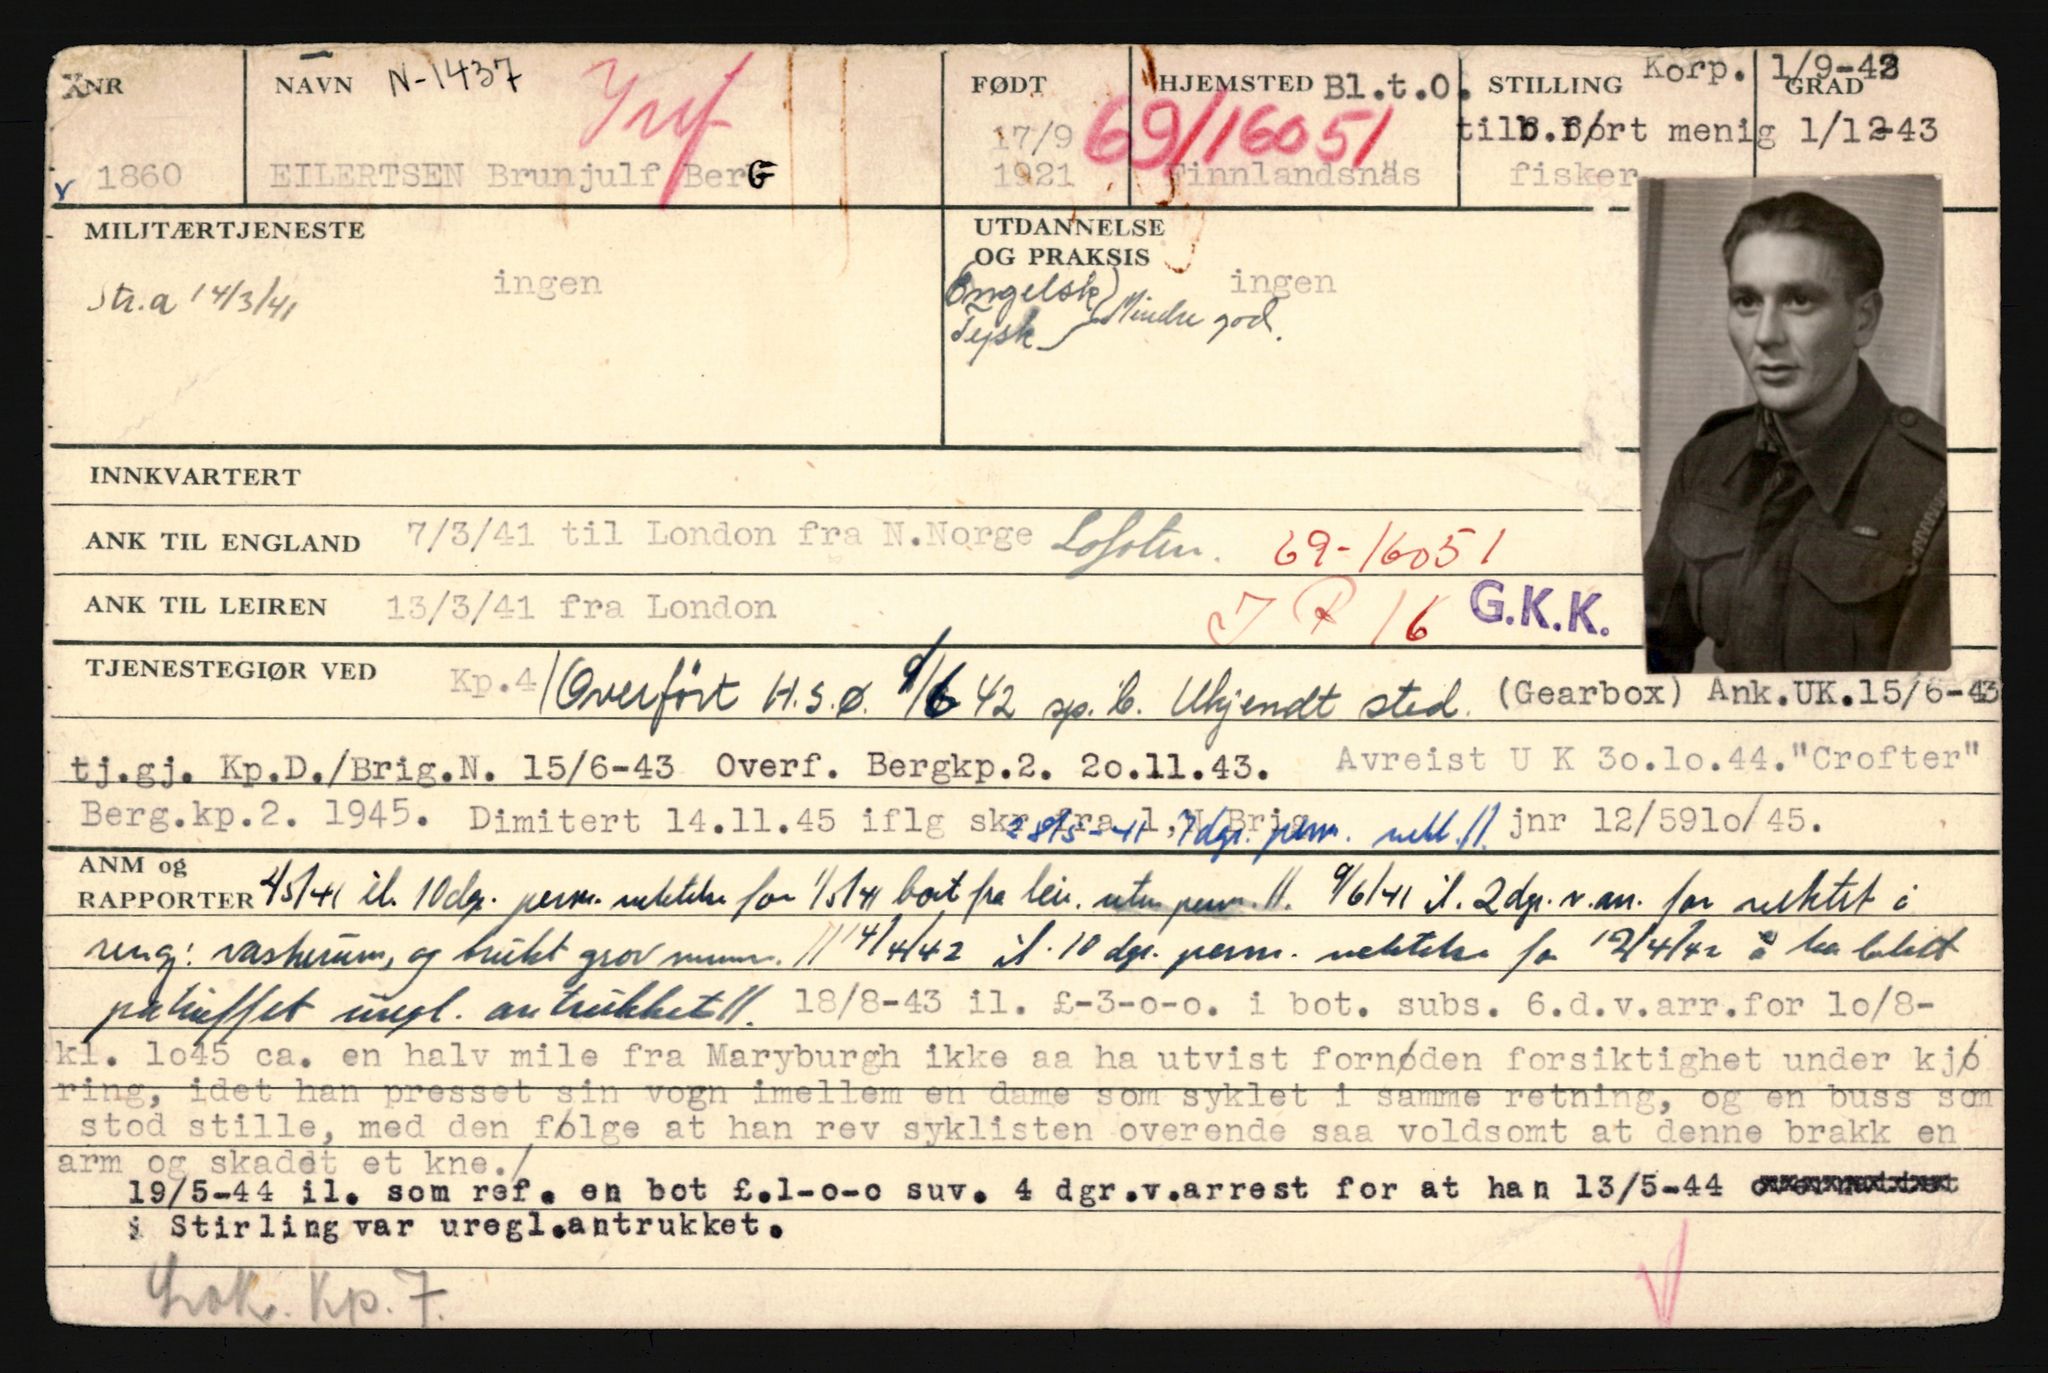 NR NAVN N-1437 Inf FØDT HJEMSTED Bl.t.O. STILLING Korp. 1/9-43 GRAD
17/9 69/16051 menig 1/12-43
1860 EILERTSEN Brunjulf BerG 1921 Finnlandsnäs fisker
MILITÆRTJENESTE UTDANNELSE
OG PRAKSIS
ingen ingen
Str.a 14/3/41 Engelsk
Tysk Mindre god.
INNKVARTERT
ANK TIL ENGLAND 7/3/41 til London fra N.Norge Lofoten. 69-16051
ANK TIL LEIREN 13/3/41 fra London 16 G.K.K.
TJENESTEGIØR VED Kp.4/Overført H.S.Ø. 9/6 42 sp. Ukjendt sted. (Gearbox) Ank.UK.15/6-43
tj.gj. Kp.D./Brig.N. 15/6-43 Overf. Bergkp.2. 2o.11.43. Avreist U K 3o.1o.44."Crofter"
Berg.kp.2. 1945. Dimitert 14.11.45 iflg skr. fra 1, N Brig jnr 12/591o/45.
28/5-41 7 dgr. perm. nekt.//.
ANM og
RAPPORTER 4/5/41 il. 10 dgr. perm. nektelse for 1/5/41 bort fra leir. uten perm.//. 9/6/41 il. 2 dgr. v.arr. for nektet å
rengj. vaskerum, og brukt grov munn.// 14/4/42 il. 10 dgr. perm. nektelse for 12/4/42 å ha blitt
patruffet uregl. antrukket//. 18/8-43 il. £-3-o-o. i bot. subs. 6.d.v.arr.for 1o/8-
kl. 1o45 ca. en halv mile fra Maryburgh ikke aa ha utvist fornøden forsiktighet under kjø
ring, idet han presset sin vogn imellem en dame som syklet i samme retning, og en buss som
stod stille, med den følge at han rev syklisten overende saa voldsomt at denne brakk en
arm og skadet et kne./
19/5-44 il. som ref. en bot £.1-o-o suv. 4 dgr.v.arrest for at han 13/5-44
i Stirling var uregl.antrukket.
Trok. Kp. 7.